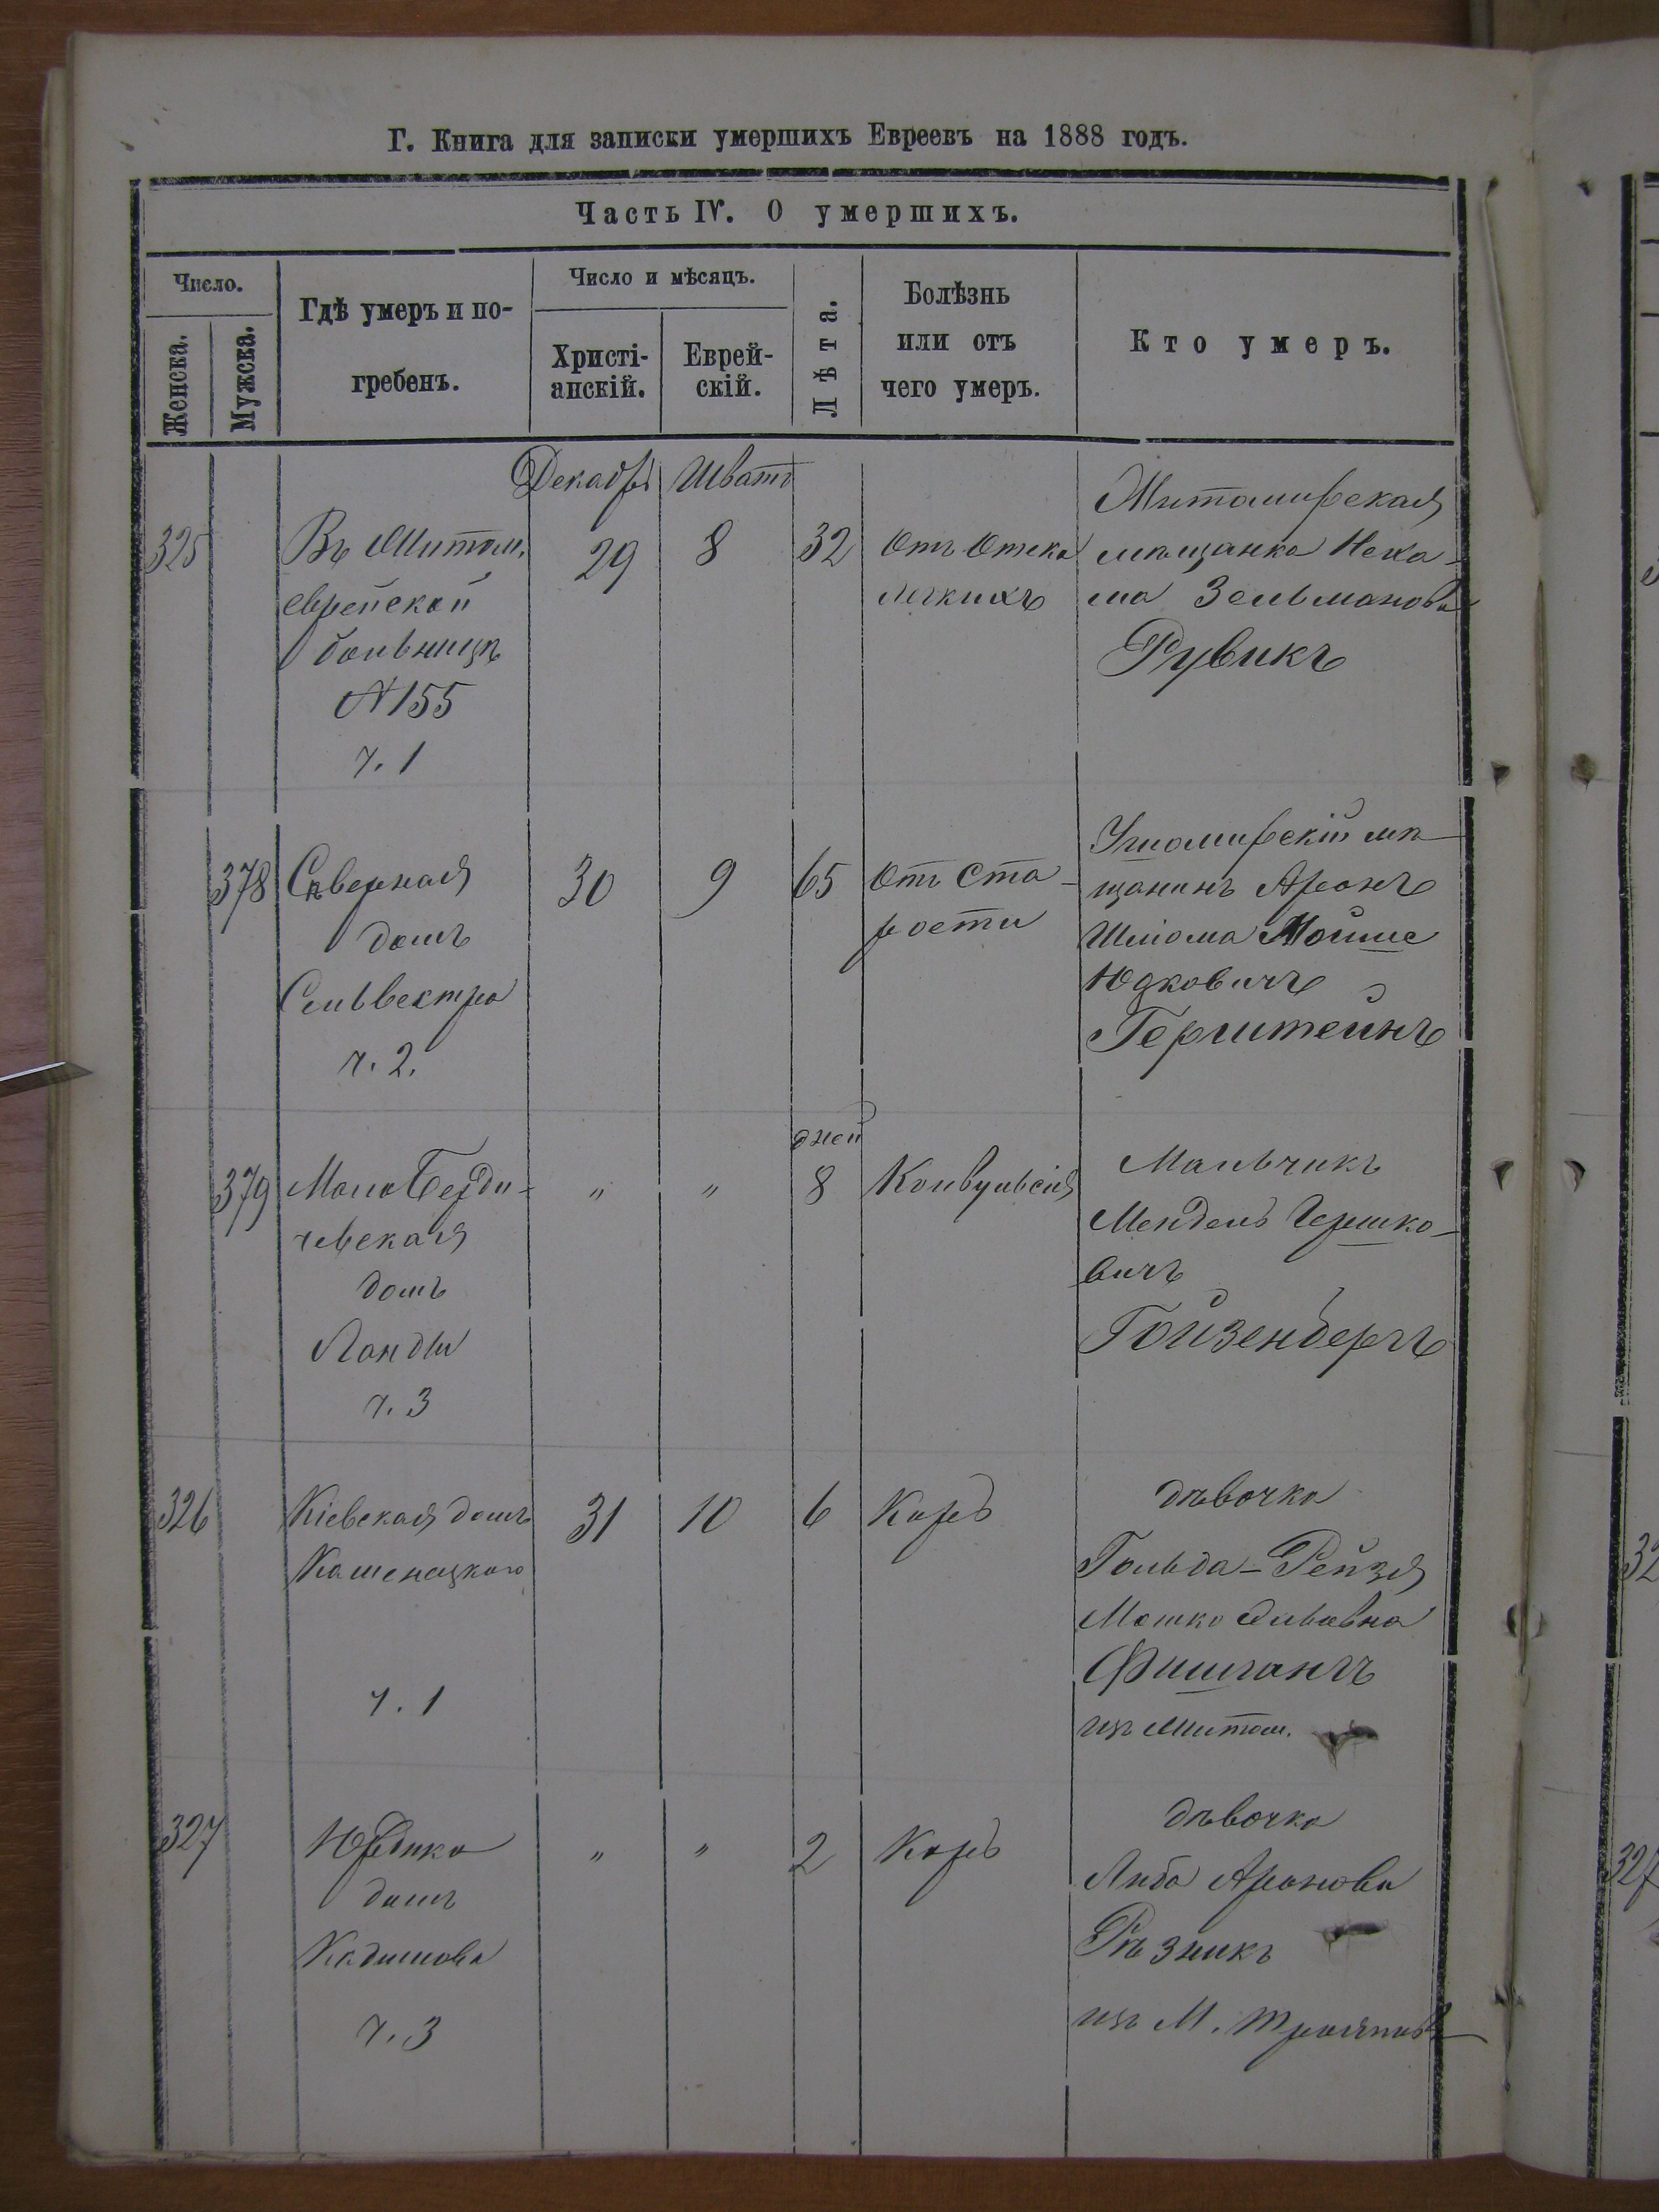 Г. Книга для записки умершихъ Евреевъ на 1888 годъ.
Часть IV. О умершихъ.
Число.
Женска.
Мужска.
Гдѣ умеръ и по-
гребенъ.
Число и мѣсяцъ.
Христі-
анскій.
Еврей-
скій.
Лѣта.
Болѣзнь
или отъ
чего умеръ.
Кто умеръ.
Декабрь Шватъ
325
Въ Житом.
еврейской
больницѣ
№ 155
ч. 1
29
8
32
Отъ Отека
легкихъ
Житомирская
мѣщанка Неха-
ма Зельманова
Рувикъ
378
Сѣверная
домъ
Сильвестра
ч. 2.
30
9
65
Отъ Ста-
рости
Ушомирскій мѣ-
щанинъ Аронъ
Шлиома Мойше
Юдковичъ
Герштейнъ
379
Мало Берди-
чевская
домъ
Ланды
ч. 3
"
"
дней
8
Конвульсія
Мальчикъ
Мендель Гершко-
вичъ
Гойзенбергъ
326
Кіевская домъ
Каменецкого
ч. 1
31
10
6
Корь
дѣвочка
Гольда-Рейзя
Мошко
Фишгангъ
изъ Житом.
327
домъ
ч. 3
"
"
2
Корь
дѣвочка
Либа Аронова
Рѣзникъ
изъ М.